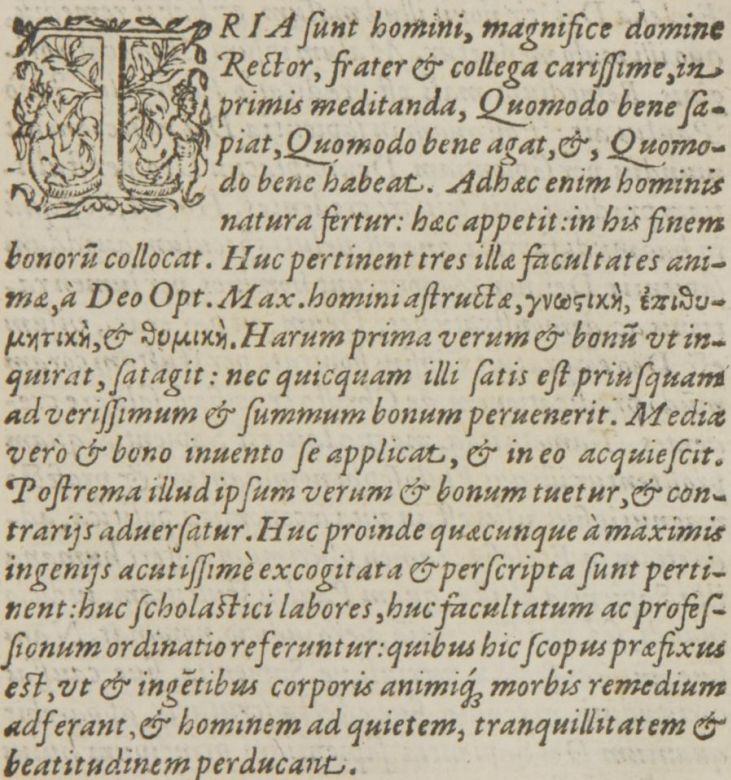 TRIA ſunt homini, magnifice domine
Rector, frater & collega cariſſime, in
primis meditanda, Quomodo bene ſa-
piat, Quomodo bene agat, &, Quomo-
do bene habeat. Ad hæc enim hominis
natura fertur: hæc appetit: in his finem
bonorū collocat. Huc pertinent tres illæ facultates ani-
mæ, à Deo Opt. Max. homini aſtructæ, γνωςικὴ, ἐπιθυ-
μητικὴ, & θυμικὴ. Harum prima verum & bonū vt in-
quirat, ſatagit: nec quicquam illi ſatis eſt priuſquam
ad veriſſimum & ſummum bonum peruenerit. Media
verò & bono inuento ſe applicat, & in eo acquieſcit.
Poſtrema illud ipſum verum & bonum tuetur, & con-
trarijs aduerſatur. Huc proinde quæcunque à maximis
ingenijs acutiſſimè excogitata & perſcripta ſunt perti-
nent: huc ſcholaſtici labores, huc facultatum ac profeſ-
ſionum ordinatio referuntur: quibus hic ſcopus præfixus
eſt, vt & ingētibus corporis animiq́; morbis remedium
adferant, & hominem ad quietem, tranquillitatem &
beatitudinem perducant.